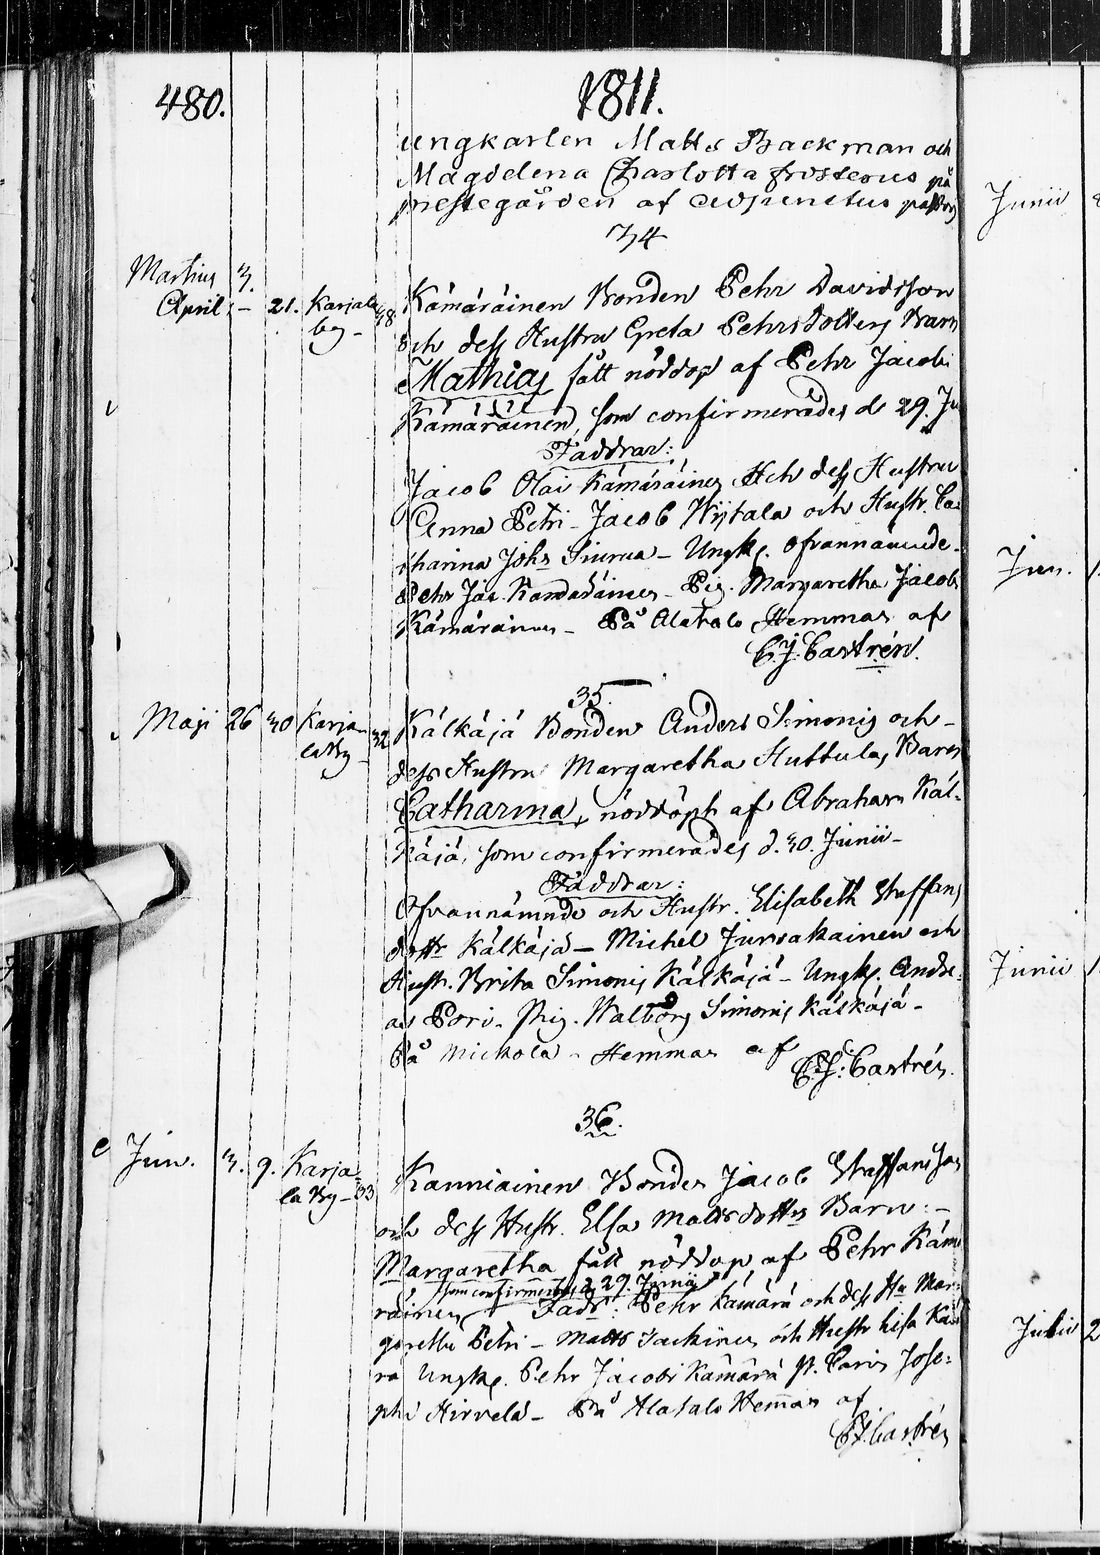 480.
1811.
ungkarlen Matts Backman och
Magdelena Charlotta Frosterus på
prestegården af adjunctus
34
Martius 3.
April – 21. Karjala
by –
Kämäräinen Bonden Pehr Davidsson
och dess Hustru Greta Pehrsdotters Barn
Mathias fått nöddop af Pehr Jacobi
Kämäräinen, som confirmerades d 29. Ju
Faddrar:
Jacob Olai Kämäräinen och dess Hustru
Anna Petri – Jacob Wijtala och Hustr. Ca
tharina Johs Siurua – Ungk. ofvannämnde
Pehr Jac. Kämäräinen – Pig. Margaretha Jacobi
Kämäräinen – På Alatalo Hemman af
E.J. Castrén.
35.
Maji 26 30 Karja-
la By – 32
Kälkäjä Bonden Anders Simonis och –
dess Hustru Margaretha Huttulas Barn
Catharina, nöddöpt af Abraham Käl-
käjä, som confirmerades d. 30. Junii –
Faddrar:
Ofvannämnde och Hustr. Elisabeth Staffans
dottr Kälkäjä – Michel Jurvakainen och
Hustr. Brita Simonis Kälkäjä – Ungk. Andre-
as Pori. Pig. Walborg Simonis Kälkäjä –
På Mickola – Hemman af
E.J. Castrén.
36.
Jun. 3. 9. Karja-
la By – 33
Kanniainen Bonden Jacob Staffansson
och dess Hustr. Elsa Mattsdotters Barn: –
Margaretha fått nöddop af Pehr Käm
som confirmerades d 29. Junii
räinen Fadd. Pehr Kämärä och dess Hu Mar-
garetha Petri – Matts Jaakinen och Hustr Lisa Kä
rä Ungk. Pehr Jacobi Kämärä p. Caris Jose-
phi Hirvelä – På Alatalo Hemman af
E.J. Castrén
Junii
Jun.
Junii
Julii 2